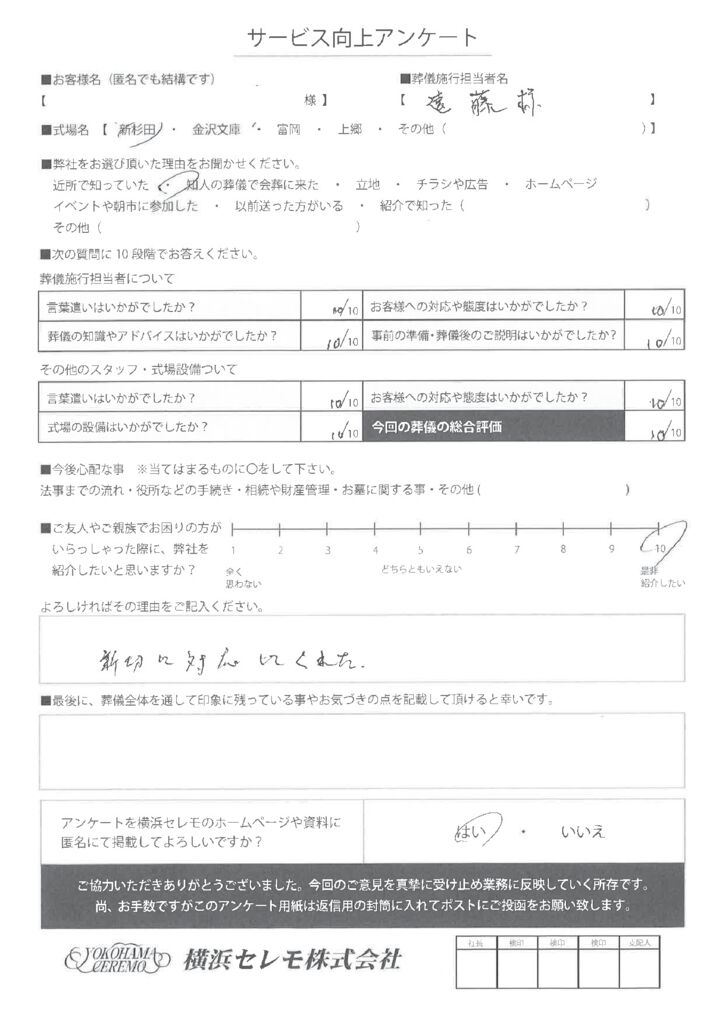 サービス向上アンケート
■お客様名（匿名でも結構です） ■葬儀施行担当者名
【 様 】 【 遠藤様 】
■式場名 【 新杉田 ・ 金沢文庫 ・ 富岡 ・ 上郷 ・ その他（ ）】
■弊社をお選び頂いた理由をお聞かせください。
近所で知っていた ・ 知人の葬儀で会葬に来た ・ 立地 ・ チラシや広告 ・ ホームページ
イベントや朝市に参加した ・ 以前送った方がいる ・ 紹介で知った（ ）
その他（ ）
■次の質問に 10 段階でお答えください。
葬儀施行担当者について
言葉遣いはいかがでしたか？ 10/10 お客様への対応や態度はいかがでしたか？ 10/10
葬儀の知識やアドバイスはいかがでしたか？ 10/10 事前の準備・葬儀後のご説明はいかがでしたか？ 10/10
その他のスタッフ・式場設備ついて
言葉遣いはいかがでしたか？ 10/10 お客様への対応や態度はいかがでしたか？ 10/10
式場の設備はいかがでしたか？ 10/10 今回の葬儀の総合評価 10/10
■今後心配な事 ※当てはまるものに〇をして下さい。
法事までの流れ・役所などの手続き・相続や財産管理・お墓に関する事・その他（ ）
■ご友人やご親族でお困りの方が
いらっしゃった際に、弊社を
紹介したいと思いますか？
1 2 3 4 5 6 7 8 9 10
全く
思わない
どちらともいえない
是非
紹介したい
よろしければその理由をご記入ください。
親切に対応してくれた.
■最後に、葬儀全体を通して印象に残っている事やお気づきの点を記載して頂けると幸いです。
アンケートを横浜セレモのホームページや資料に
匿名にて掲載してよろしいですか？
はい ・ いいえ
ご協力いただきありがとうございました。今回のご意見を真摯に受け止め業務に反映していく所存です。
尚、お手数ですがこのアンケート用紙は返信用の封筒に入れてポストにご投函をお願い致します。
YOKOHAMA
CEREMO
横浜セレモ株式会社
社長 検印 検印 検印 支配人